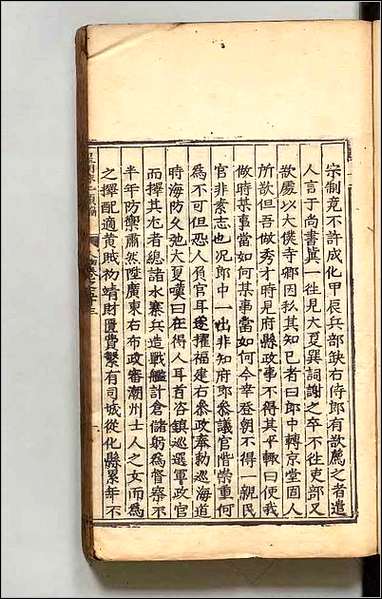 宗制竟不許成化甲辰兵部缺右侍郎有欲薦之者遣
人言于尚書冀一往見大夏巽詞謝之卒不往吏部又
欲處以太僕寺卿因私其知已者曰郎中轉京堂固人
所欲但吾做秀才時見府縣政事不得其平輒曰使我
做時某事當如何某事當如何今幸登朝不得一親民
官非素志也况郎中一出非知府郎參議官階崇重何
為不可但恐人負官耳遂擢福建右參政奉勑巡海道
時海防久弛大夏嘆曰在得人耳首咨鎮巡選軍政官
而擇其尤者總諸水寨兵造戰艦計倉儲躬為督察不
半年防禦肅然陞廣東右布政審潮州士人之女而為
之擇配適黄賊初靖財匱費繁有司城從化縣累年不